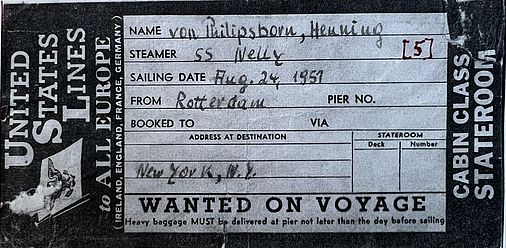 UNITED STATES LINES
to ALL EUROPE
(IRELAND, ENGLAND, FRANCE, GERMANY)
NAME von Philipsborn, Henning
STEAMER SS Nelly [5]
SAILING DATE Aug. 24, 1951
FROM Rotterdam PIER NO.
BOOKED TO VIA
ADDRESS AT DESTINATION STATEROOM
Deck Number
New York, N.Y.
WANTED ON VOYAGE
Heavy baggage MUST be delivered at pier not later than the day before sailing
CABIN CLASS
STATEROOM